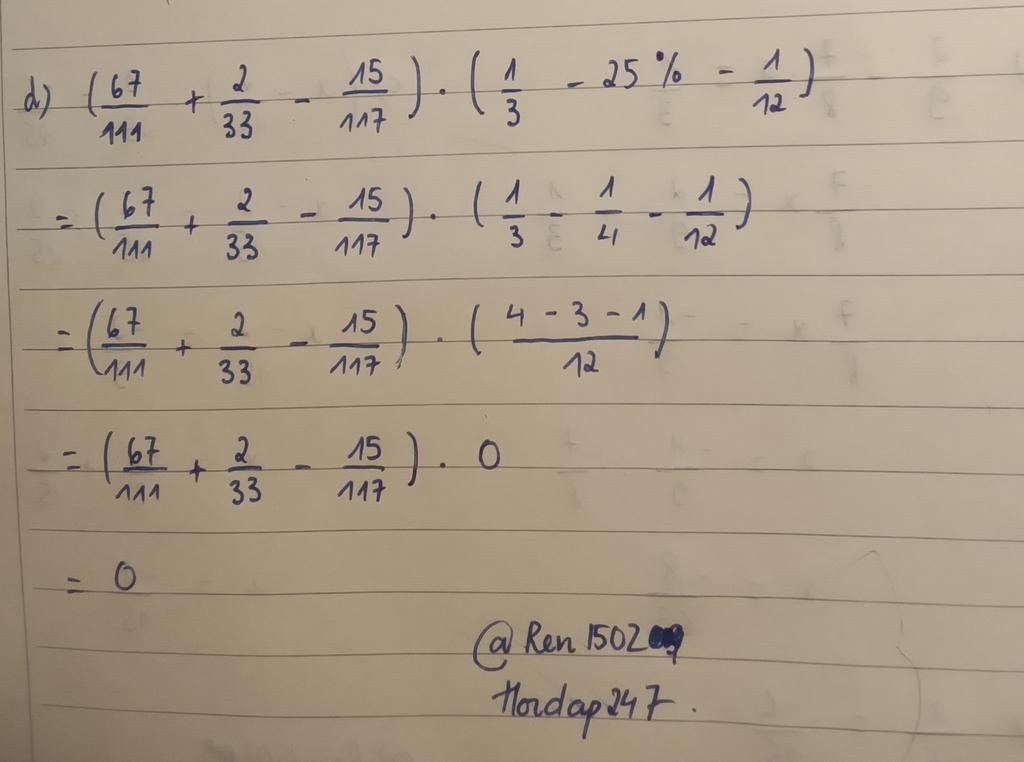 d) (67/111 + 2/33 - 15/117) · (1/3 - 25% - 1/12)
= (67/111 + 2/33 - 15/117) · (1/3 - 1/4 - 1/12)
= (67/111 + 2/33 - 15/117) · ((4 - 3 - 1)/12)
= (67/111 + 2/33 - 15/117) · 0
= 0
@Ren1502
Hoidap247.